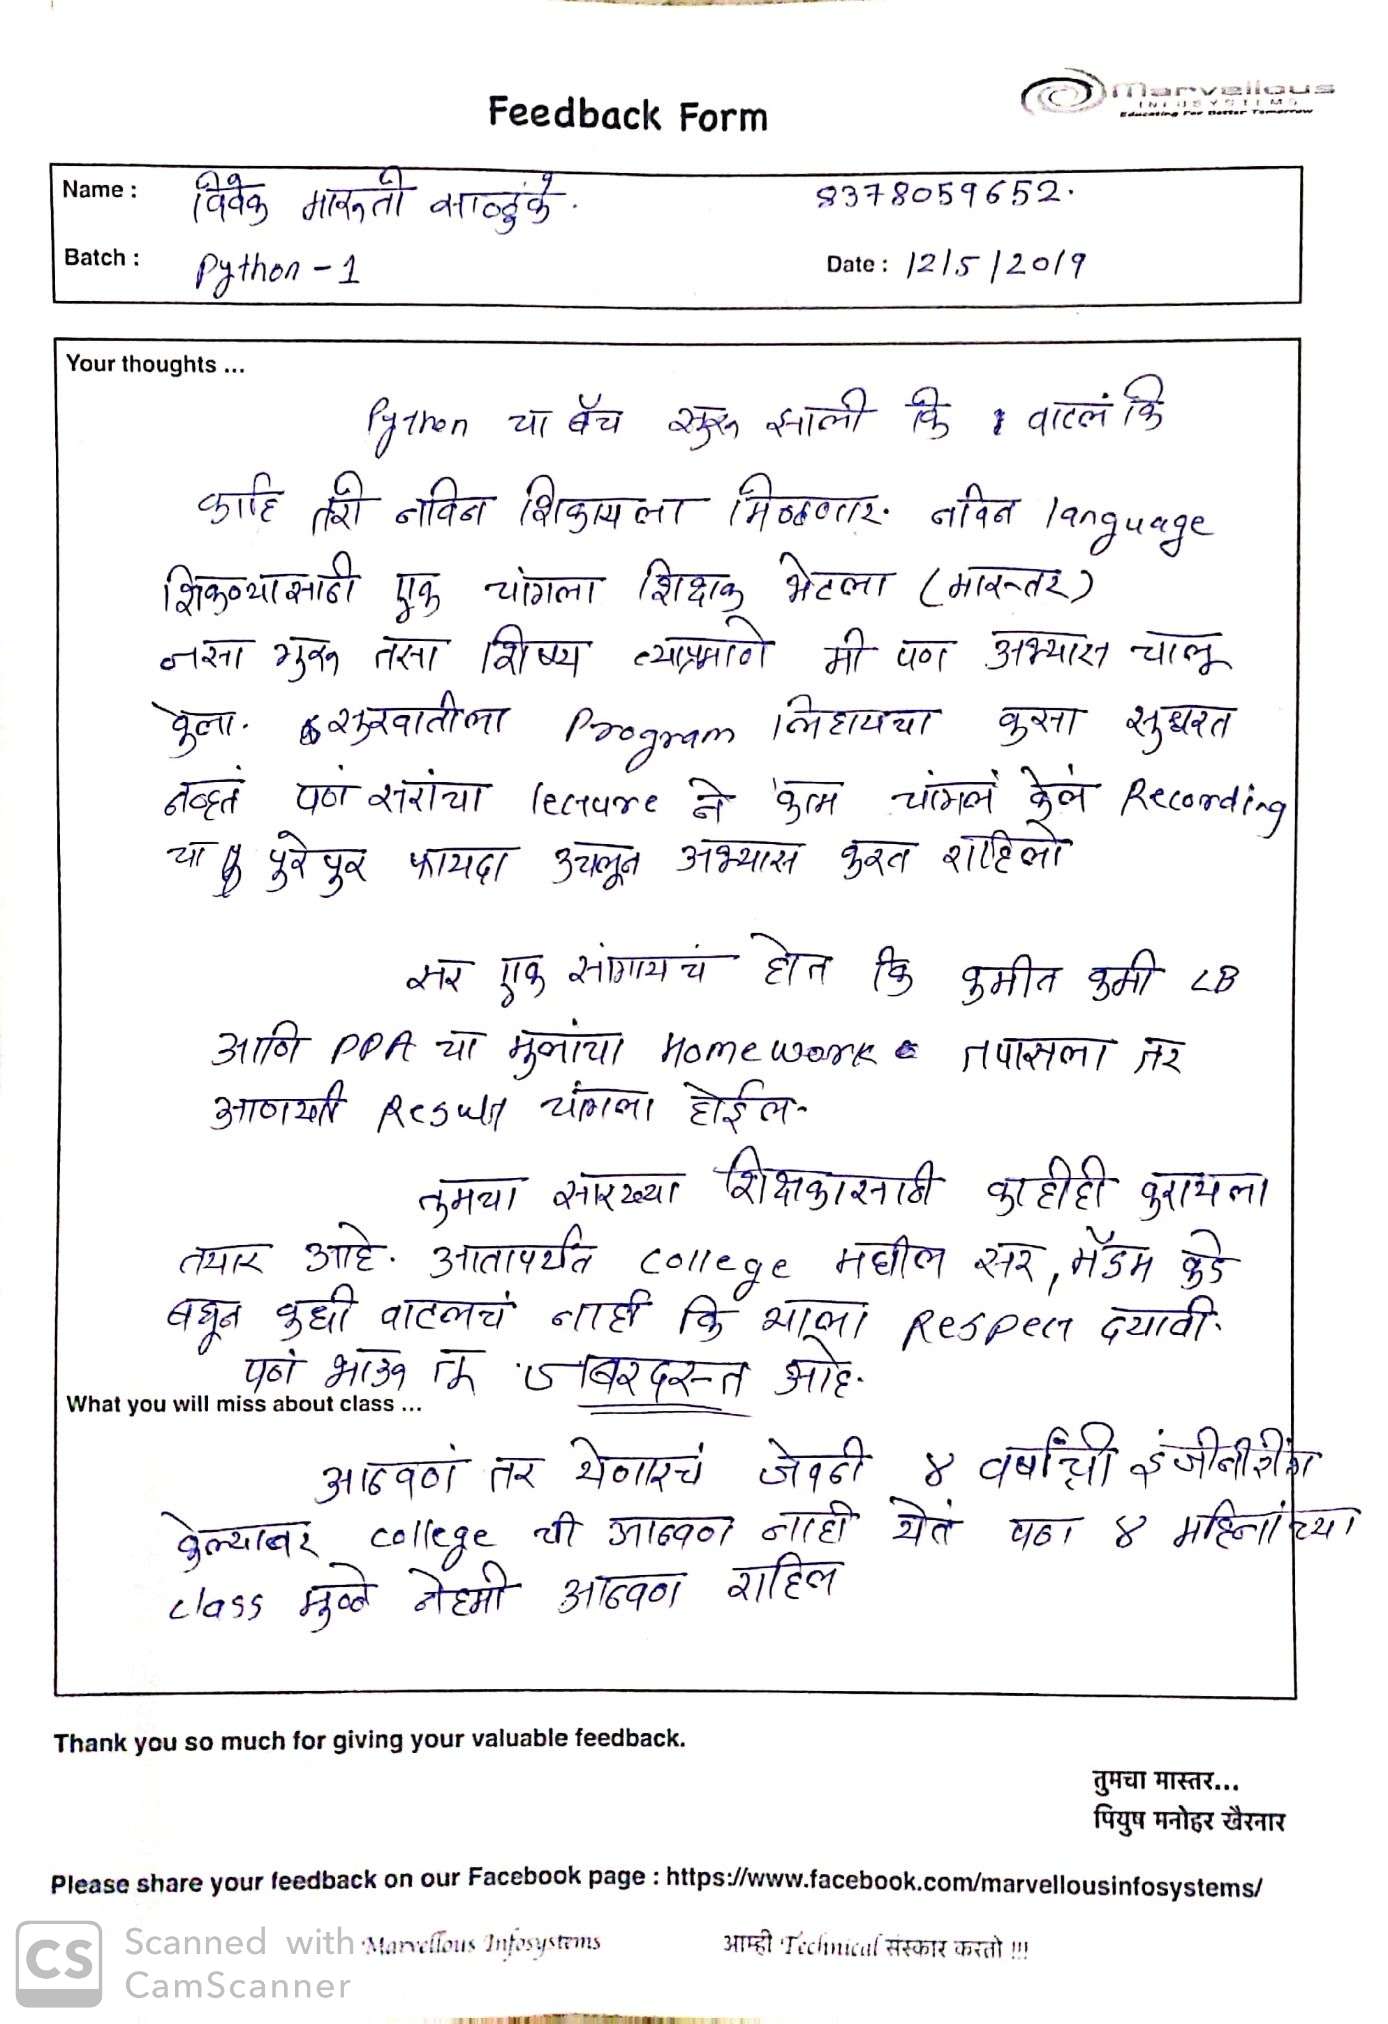 Feedback Form
Marvellous
INFOSYSTEMS
Educating For Better Tomorrow
Name : विवेक मारुती साळुंके. 8378059652.
Batch : Python - 1 Date : 12/5/2019
Your thoughts ...
Python चा बॅच सुरू झाली कि वाटलं कि
काहि तरी नविन शिकायला मिळणार. नविन language
शिकण्यासाठी एक चांगला शिक्षक भेटला (मास्तर)
जसा गुरू तसा शिष्य त्याप्रमाणे मी पण अभ्यास चालू
केला. सुरवातीला Program लिहायचा कसा सुधरत
नव्हतं पण सरांचा lecture ने काम चांगलं केलं Recording
चा पुरेपुर फायदा उचलून अभ्यास करत राहिलो
सर एक सांगायचं होत कि कमीत कमी LB
आणि PPA चा मुलांचा Homework तपासला तर
आणखी Result चांगला होईल.
तुमचा सारख्या शिक्षकासाठी काहीही करायला
तयार आहे. आतापर्यंत college मधील सर, मॅडम कडे
बघून कधी वाटलचं नाही कि याला Respect दयावी.
पणं भाऊ तू जबरदस्त आहे.
What you will miss about class ...
आठवणं तर येणारचं जेवढी ४ वर्षांची इंजीनीरींग
केल्यावर college ची आठवण नाही येतं पण ४ महिनांच्या
class मुळे नेहमी आठवण राहिल
Thank you so much for giving your valuable feedback.
तुमचा मास्तर...
पियुष मनोहर खैरनार
Please share your feedback on our Facebook page : https://www.facebook.com/marvellousinfosystems/
Marvellous Infosystems आम्ही Technical संस्कार करतो !!!
CS Scanned with
CamScanner